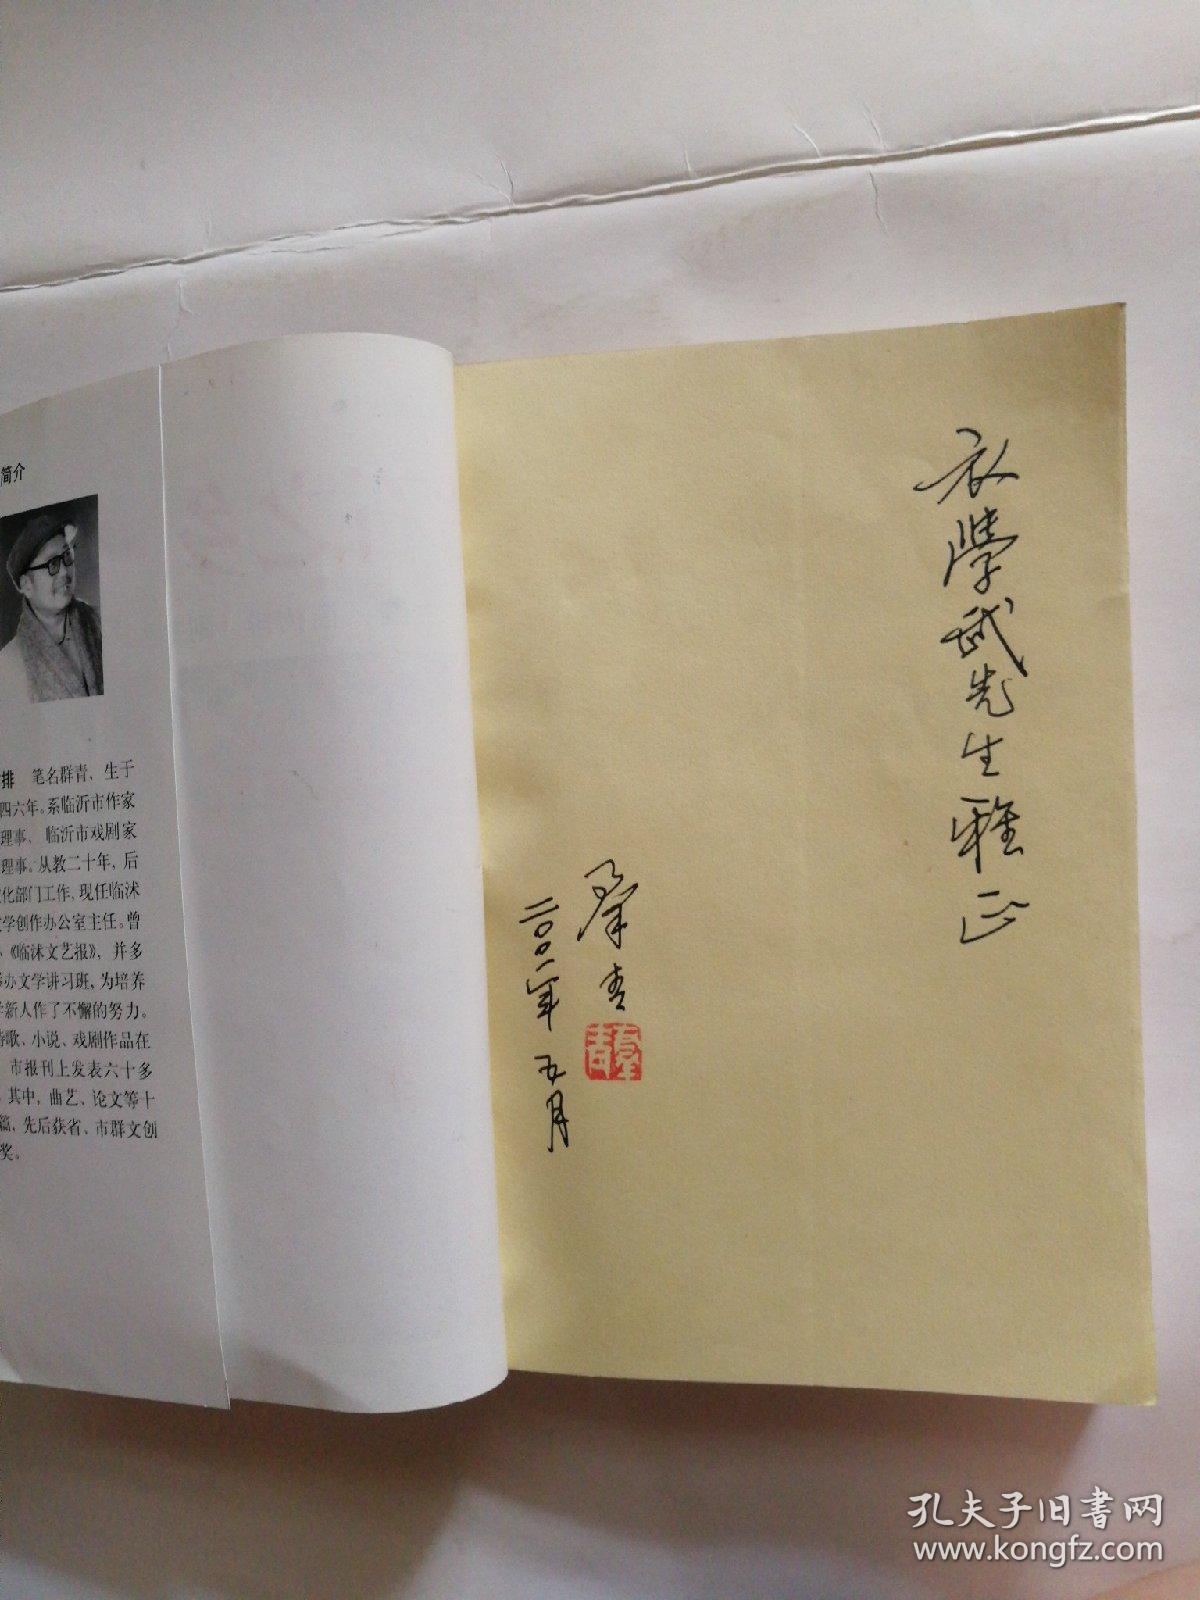 简介
排 笔名群青，生于
四六年。系临沂市作家
理事、临沂市戏剧家
理事。从教二十年，后
化部门工作，现任临沭
文学创作办公室主任。曾
《临沭文艺报》，并多
办文学讲习班，为培养
学新人作了不懈的努力。
诗歌、小说、戏剧作品在
市报刊上发表六十多
。其中，曲艺、论文等十
篇，先后获省、市群文创
奖。
衣學武先生雅正
羣青
二〇〇一年五月
羣青
孔夫子旧书网
www.kongfz.com